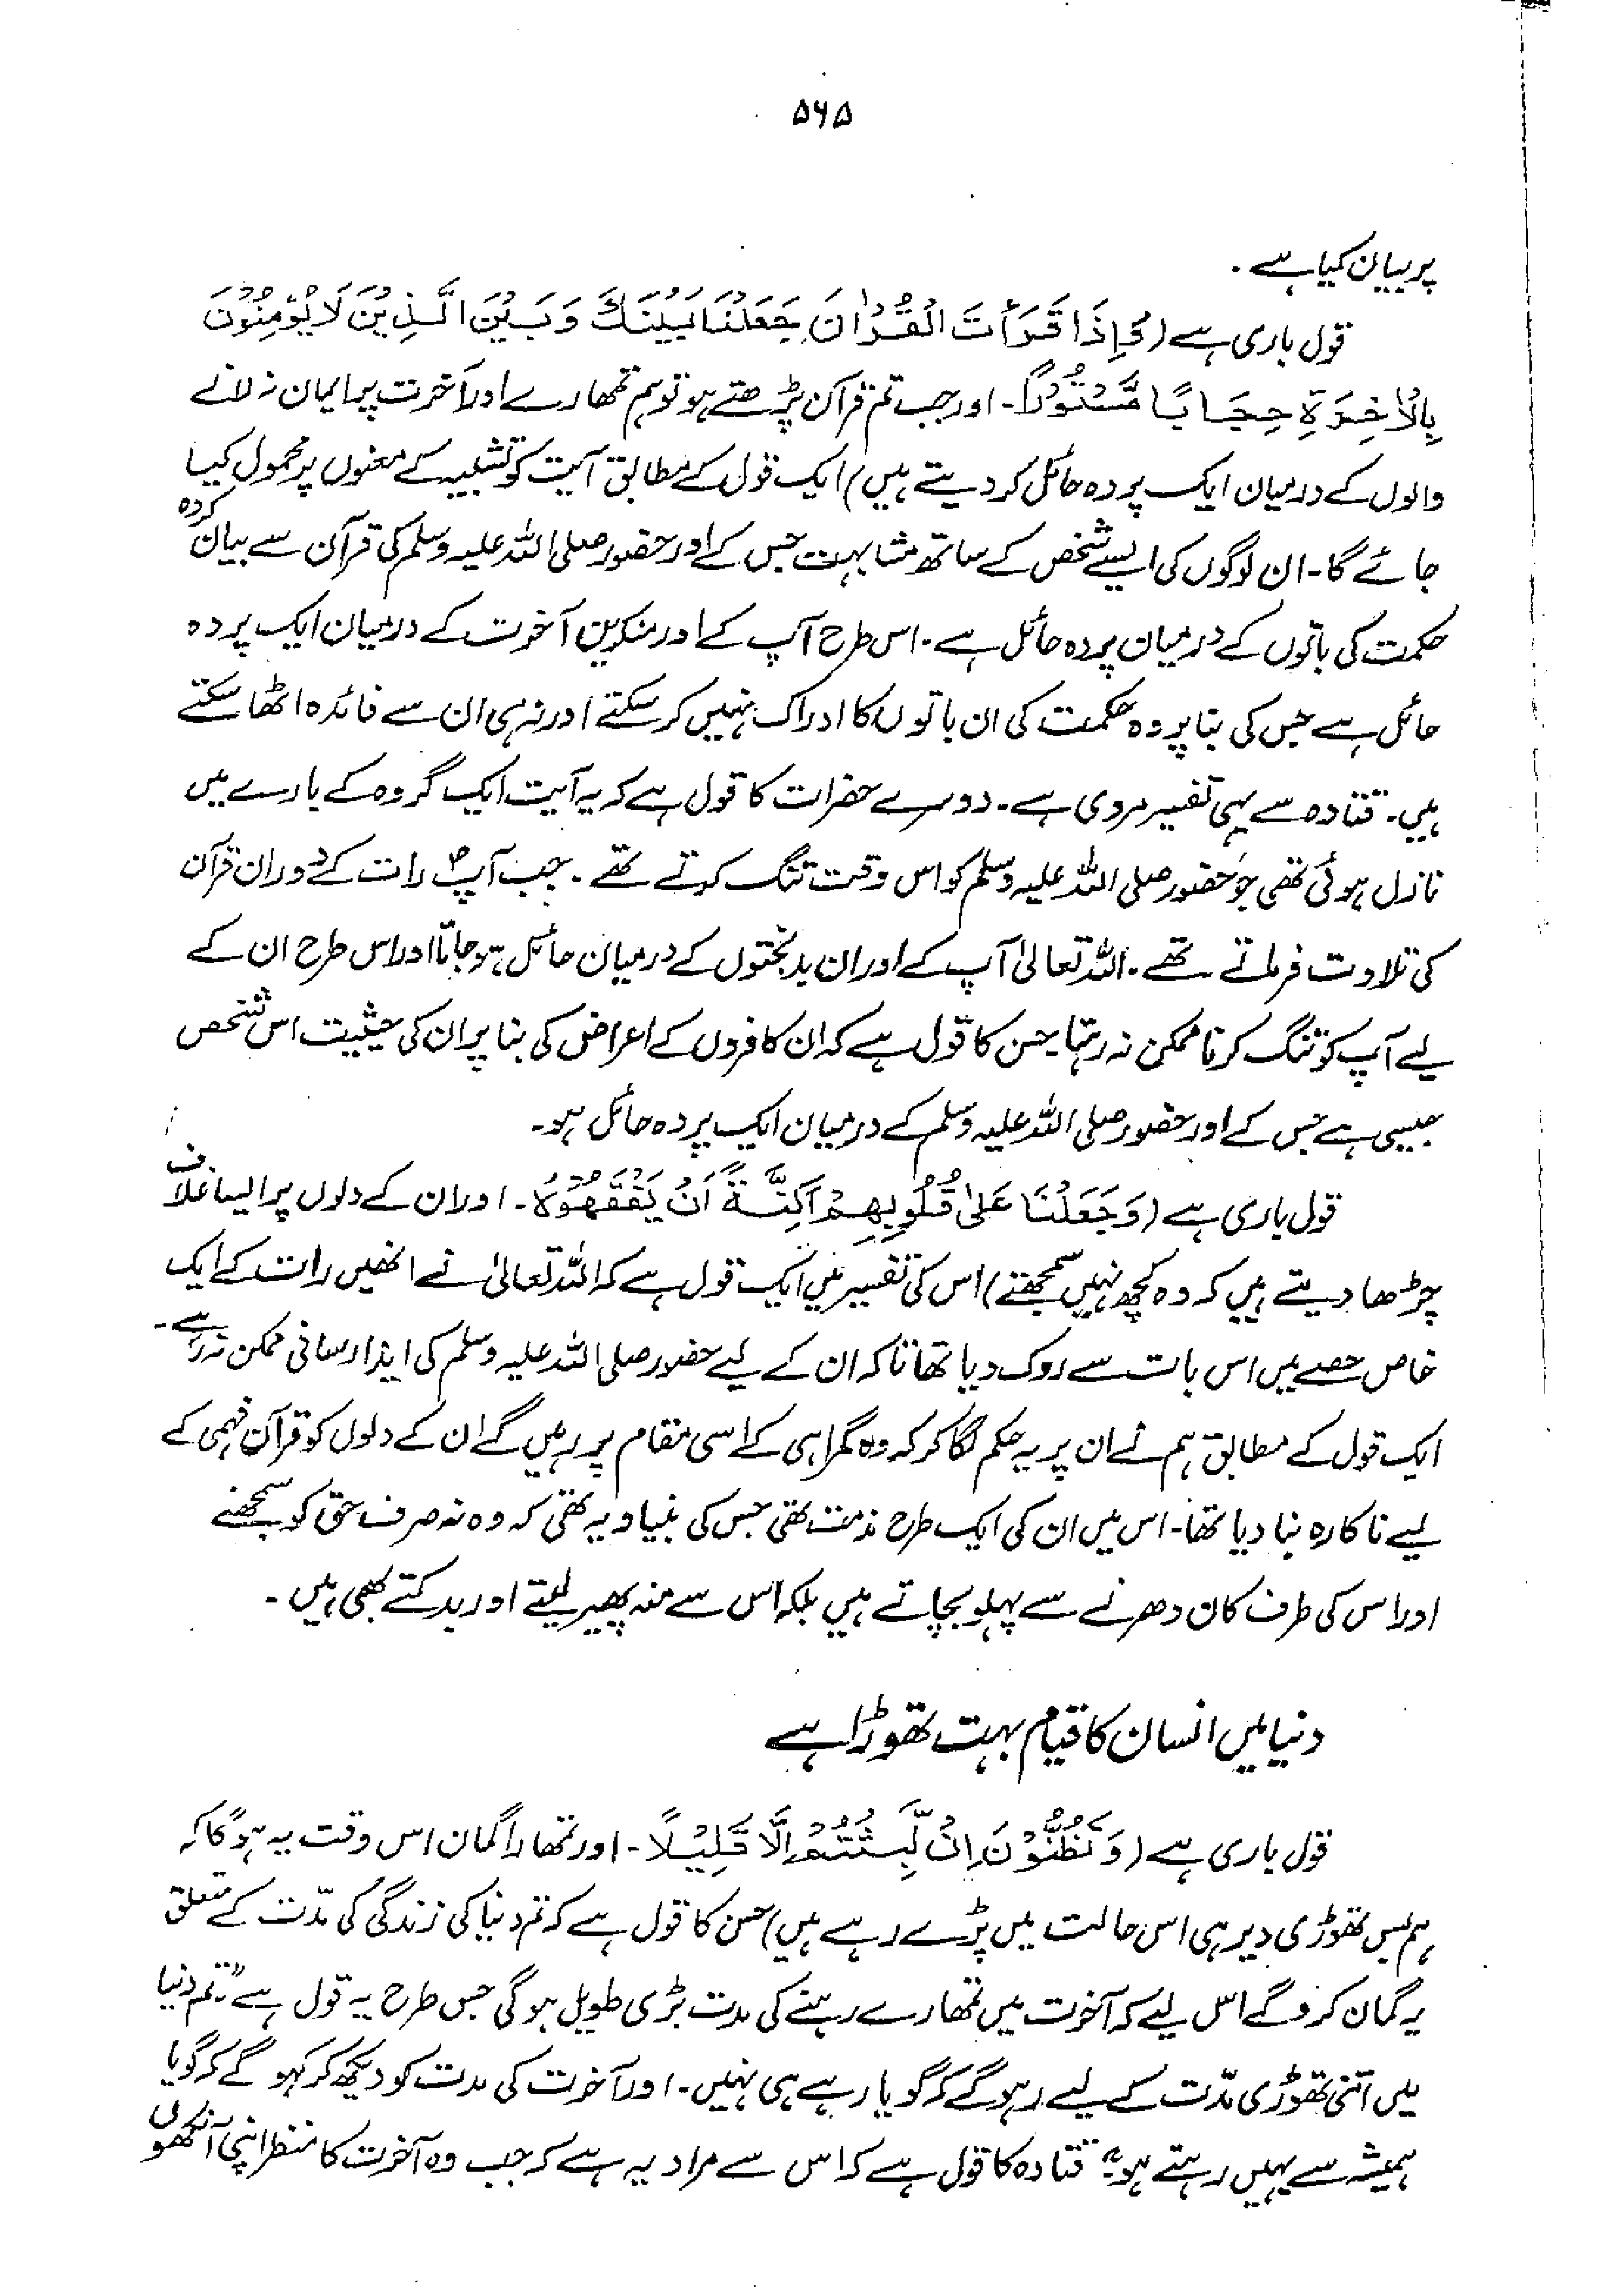 ۵۶۵
پر بیان کیا ہے۔
قول باری ہے (وَإِذَا قَرَأْتَ الْقُرْاٰنَ جَعَلْنَا بَيْنَكَ وَبَيْنَ الَّذِيْنَ لَا يُؤْمِنُوْنَ
بِالْاٰخِرَةِ حِجَابًا مَّسْتُوْرًا۔ اور جب تم قرآن پڑھتے ہو تو ہم تمھارے اور آخرت پر ایمان نہ لانے
والوں کے درمیان ایک پردہ حائل کر دیتے ہیں) ایک قول کے مطابق آیت کو تشبیہ کے معنوں پر محمول کیا
جائے گا۔ ان لوگوں کی ایسے شخص کے ساتھ مشابہت جس کے اور حضور صلی اللہ علیہ وسلم کی قرآن سے بیان کردہ
حکمت کی باتوں کے درمیان پردہ حائل ہے۔ اس طرح آپ کے اور منکرین آخرت کے درمیان ایک پردہ
حائل ہے جس کی بنا پر وہ حکمت کی ان باتوں کا ادراک نہیں کر سکتے اور نہ ہی ان سے فائدہ اٹھا سکتے
ہیں۔ قتادہ سے یہی تفسیر مروی ہے۔ دوسرے حضرات کا قول ہے کہ یہ آیت ایک گروہ کے بارے میں
نازل ہوئی تھی جو حضور صلی اللہ علیہ وسلم کو اس وقت تنگ کرتے تھے۔ جب آپؐ رات کے دوران قرآن
کی تلاوت فرماتے تھے۔ اللہ تعالیٰ آپ کے اور ان بدبختوں کے درمیان حائل ہو جاتا اور اس طرح ان کے
لیے آپ کو تنگ کرنا ممکن نہ رہتا۔ حسن کا قول ہے کہ ان کافروں کے اعراض کی بنا پر ان کی حیثیت اس شخص
جیسی ہے جس کے اور حضور صلی اللہ علیہ وسلم کے درمیان ایک پردہ حائل ہو۔
قول باری ہے (وَجَعَلْنَا عَلٰى قُلُوْبِهِمْ اَكِنَّةً اَنْ يَفْقَهُوْهُ۔ اور ان کے دلوں پر ایسا غلاف
چڑھا دیتے ہیں کہ وہ کچھ نہیں سمجھتے) اس کی تفسیر میں ایک قول ہے کہ اللہ تعالیٰ نے انھیں رات کے ایک
خاص حصے میں اس بات سے روک دیا تھا تاکہ ان کے لیے حضور صلی اللہ علیہ وسلم کی ایذا رسانی ممکن نہ رہے۔
ایک قول کے مطابق ہم نے ان پر یہ حکم لگا کر کہ وہ گمراہی کے اسی مقام پر رہیں گے ان کے دلوں کو قرآن فہمی کے
لیے ناکارہ بنا دیا تھا۔ اس میں ان کی ایک طرح مذمت تھی جس کی بنیاد یہ تھی کہ وہ نہ صرف حق کو سمجھنے
اور اس کی طرف کان دھرنے سے پہلو بچاتے ہیں بلکہ اس سے منہ پھیر لیتے اور بدکتے بھی ہیں۔
دنیا میں انسان کا قیام بہت تھوڑا ہے
قول باری ہے (وَتَظُنُّوْنَ اِنْ لَّبِثْتُمْ اِلَّا قَلِيْلًا۔ اور تمھارا گمان اس وقت یہ ہوگا کہ
ہم بس تھوڑی دیر ہی اس حالت میں پڑے رہے ہیں) حسن کا قول ہے کہ تم دنیا کی زندگی کی مدّت کے متعلق
یہ گمان کرو گے اس لیے کہ آخرت میں تمھارے رہنے کی مدت بڑی طویل ہوگی جس طرح یہ قول ہے "تم دنیا
میں اتنی تھوڑی مدّت کے لیے رہو گے کہ گویا رہے ہی نہیں۔ اور آخرت کی مدت کو دیکھ کر کہو گے کہ گویا
ہمیشہ سے یہیں رہتے ہو" قتادہ کا قول ہے کہ اس سے مراد یہ ہے کہ جب وہ آخرت کا منظر اپنی آنکھوں